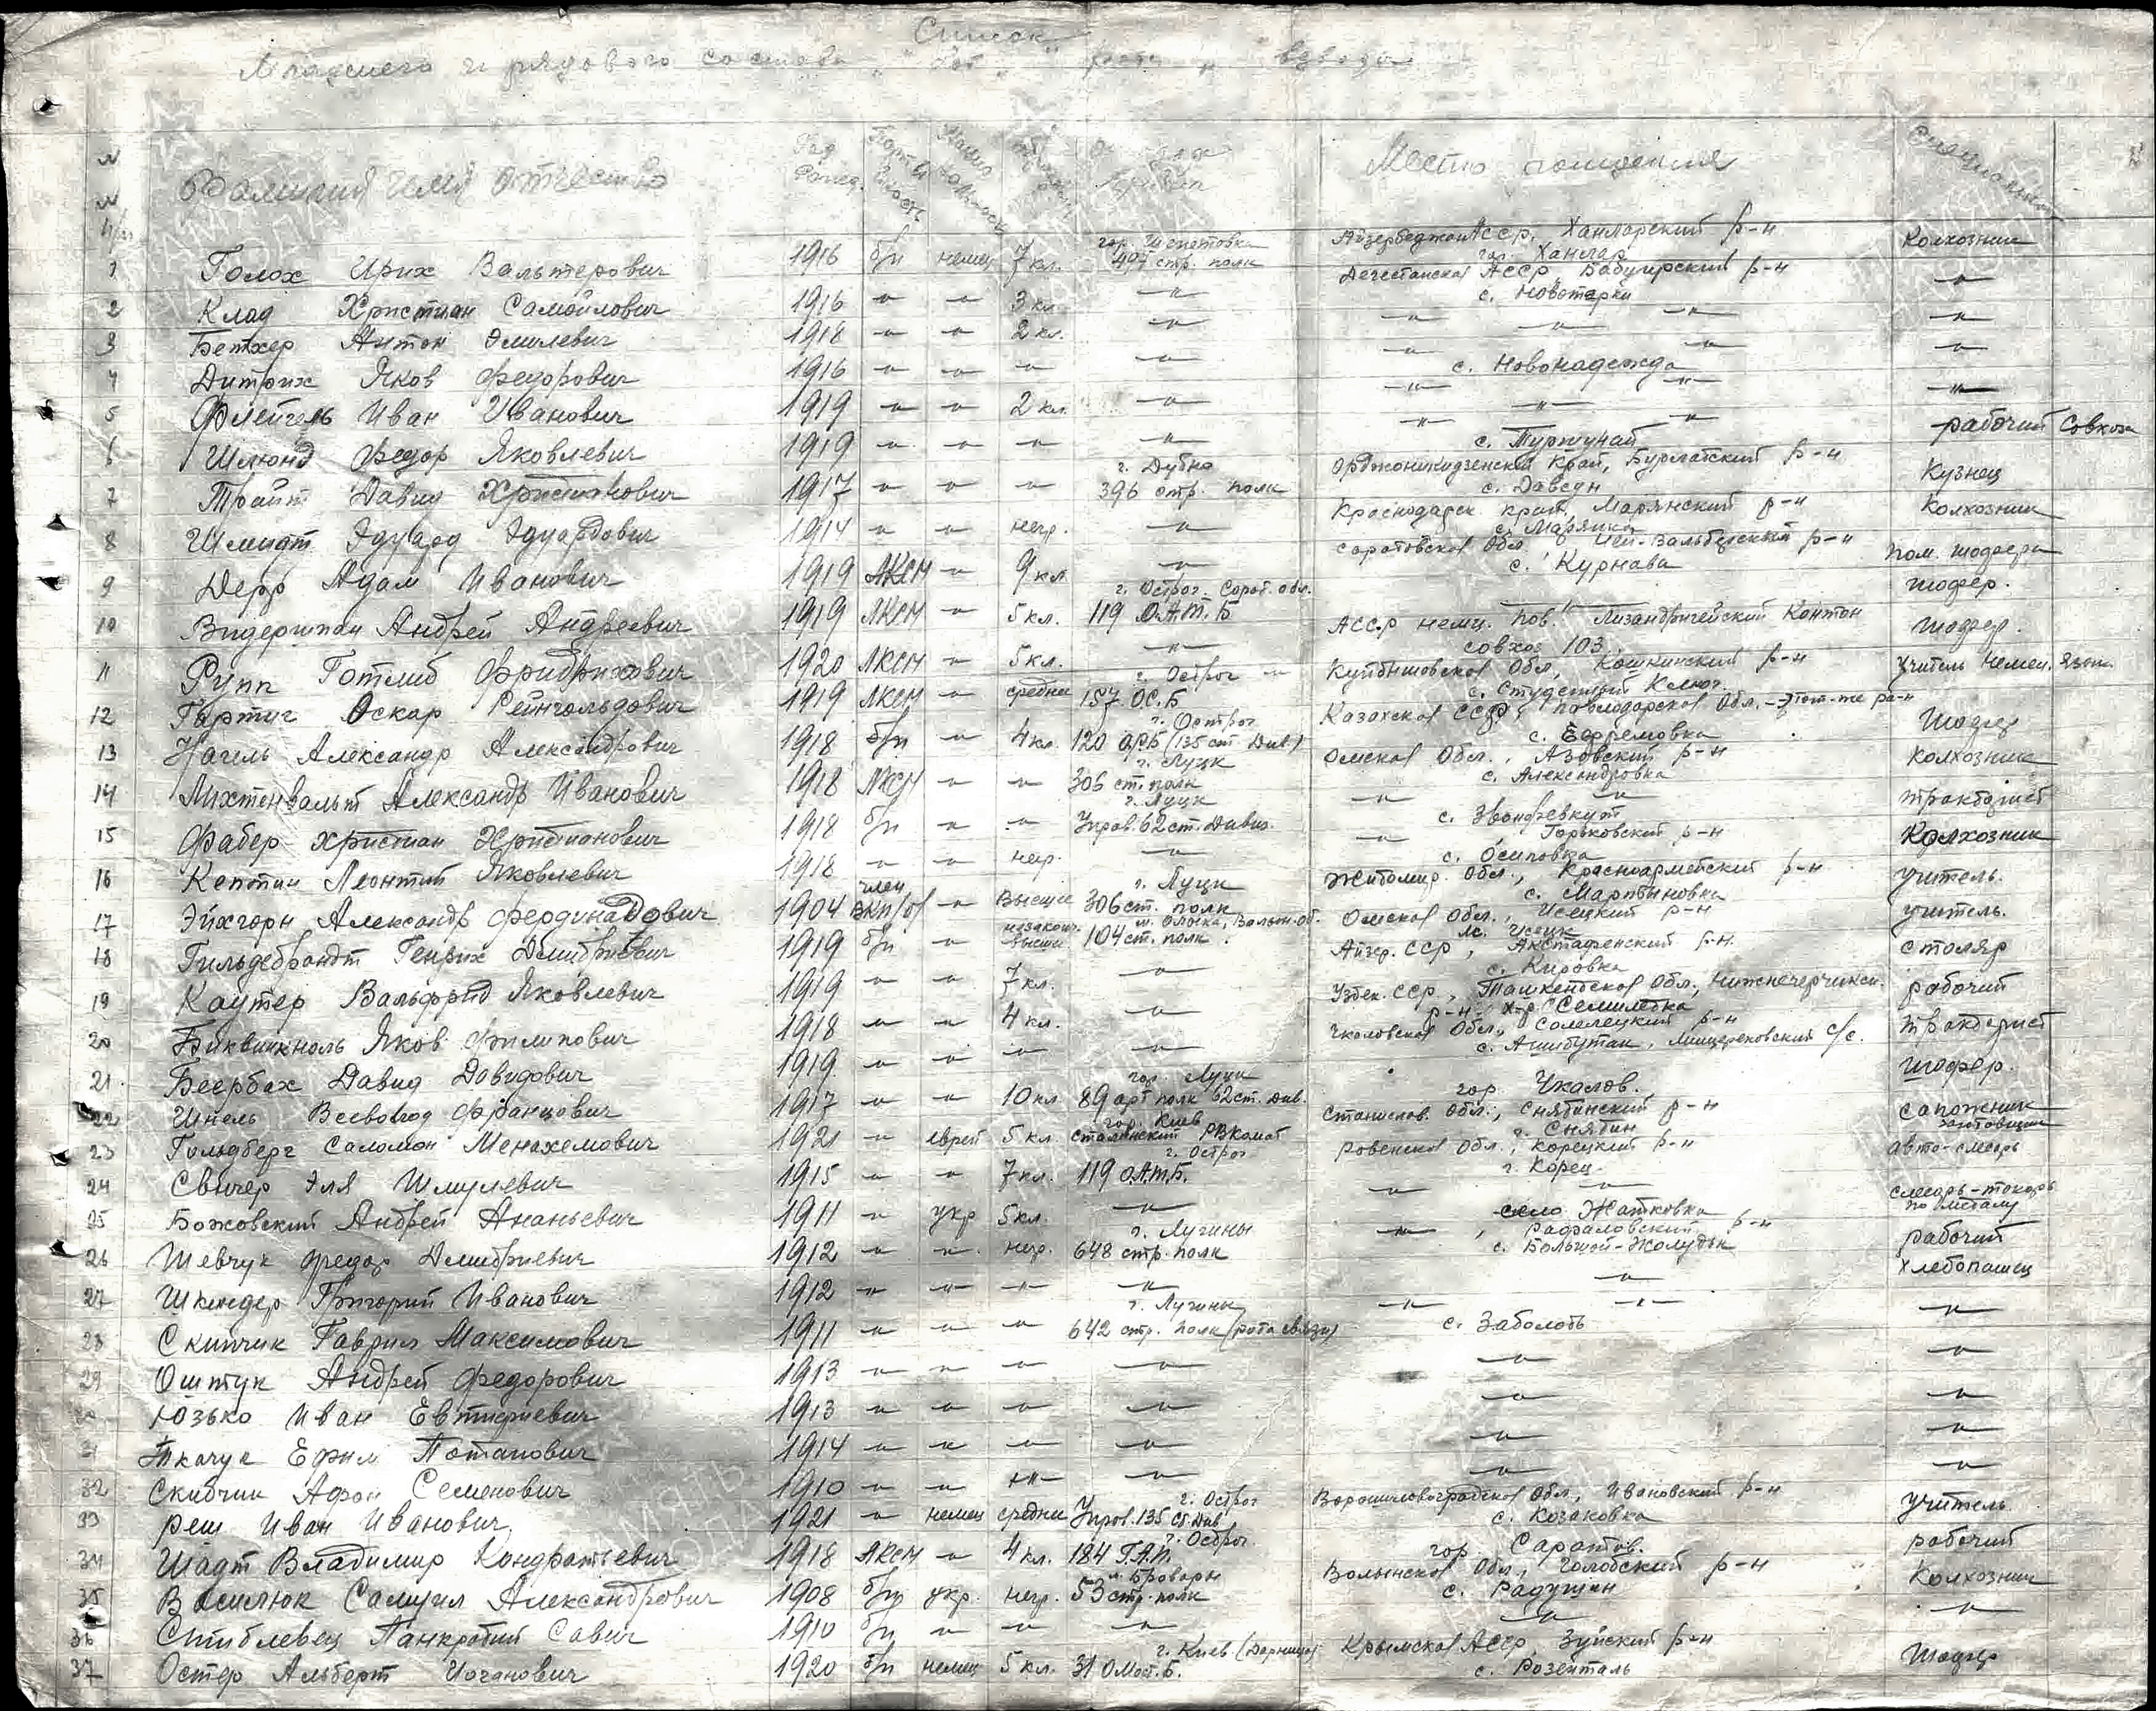 Список
Младшего и рядового состава " " роты " взвода
№ № п/п Фамилия имя отчество Год рожд. Партийность Национальность Место рождения Специальность
1 Голох Ирих Вальтерович 1916 б/п немец 7 кл. гор. Шепетовка 497 стр. полк Айзербеджан АССР, Ханларский р-н гор. Ханлар Колхозник
2 Клад Христиан Самойлович 1916 -"- -"- 3 кл. -"- Дегестанской АССР, Бабуирский р-н с. Новотерки -"-
3 Беткер Антон Эмилевич 1918 -"- -"- 2 кл. -"- -"- -"- -"- -"-
4 Дитрих Яков Федорович 1916 -"- -"- -"- -"- -"- -"- с. Новонадежда -"-
5 Флейгель Иван Иванович 1919 -"- -"- 2 кл. -"- -"- -"- -"- -"-
6 Шмюнд Федор Яковлевич 1919 -"- -"- -"- -"- -"- -"- рабочий Совхоза
7 Трайт Давид Христианович 1917 -"- -"- -"- г. Дубно 396 стр. полк Орджоникидзенский Край, р-н с. Давсун Кузнец
8 Шмидт Эдуард Эдуардович 1914 -"- -"- негр. -"- Краснодарск. край, Марянский р-н с. Марянка Колхозник
9 Дерр Адам Иванович 1919 ЛКСМ -"- 9 кл. -"- Саратовской Обл. р-н с. Курнава пом. шофера
10 Видершпан Андрей Андреевич 1919 ЛКСМ -"- 5 кл. г. Острог. Сарат. обл. 119 О.А.Т.Б шофер.
11 Рупп Готлиб Фридрихович 1920 ЛКСМ -"- 5 кл. -"- АССР немц. Пов. Лизандргейский Кантон совхоз 103. шофер.
12 Гартиг Оскар Рейнгольдович 1919 ЛКСМ -"- средне г. Острог 157 ОС.Б Куйбышовской Обл, Кошкинский р-н с. Студеный Ключ учитель Немец. Язык.
13 Нагель Александр Александрович 1918 б/п -"- 4 кл. г. Острог 120 ОРБ (135 ст Див.) Казахской ССР, Павлодарской Обл. - Этот-же ра-н с. Ефремовка Шофер
14 Лихтенвальт Александр Иванович 1918 ЛКСМ -"- -"- г. Луцк 306 ст. полк Омской Обл., Азовский р-н с. Александровка колхозник
15 Фабер Христиан Христианович 1918 б/п -"- -"- г. Луцк Управ. 62 ст. Дивиз. -"- -"- с. Звонаревкут тракторист
16 Кептин Леонтий Яковлевич 1918 -"- -"- негр. -"- -"- Горьковский р-н с. Осиповка Колхозник
17 Эйхгорн Александр Фердинадович 1904 член ВКП/б/ -"- Высшее г. Луцк 306 ст. полк Житомир. Обл., Красноармейский р-н с. Мартыновка учитель.
18 Гильдебрандт Генрих Дмитриевич 1919 б/п -"- незаконч. высше м. Олыка, Волын. об. 104 ст. полк. Омской Обл., Исецкий р-н м. Исецк учитель.
19 Каутер Вальфрид Яковлевич 1919 -"- -"- 7 кл. -"- Айзер. ССР, Акстафенский р-н. с. Кировка столяр
20 Биквикноль Яков Филипович 1918 -"- -"- 4 кл. -"- Узбек. ССР, Ташкентской Обл., Нижнечерчикск. р-н, х-р "Семилетка рабочий
21. Беербах Давид Давидович 1919 -"- -"- -"- -"- Чкаловской Обл., Солелецкий р-н с. Ащибутак, с/с. тракторист
22 Шнель Всеволод Францович 1917 -"- -"- 10 кл гор. Луцк 89 арт полк 62 ст. див. гор. Чкалов. шофер.
23 Гольдберг Саломон Менахемович 1921 -"- еврей 5 кл гор. Киев Сталинский РВКомат Станислав. Обл., Снятинский р-н г. Снятин сапожник заготовщик
24 Свичер Эля Шмулевич 1915 -"- -"- 7 кл. г. Острог 119 О.А.Т.Б. Ровенской Обл., Корецкий р-н г. Корец авто-слесарь
25 Божовский Андрей Ананьевич 1911 -"- укр 5 кл. -"- -"- -"- село Жатковка слесарь-токарь по металу
26 Шевчук Федор Дмитриевич 1912 -"- -"- негр. г. Лугины 648 стр. полк -"-, Рафаловский р-н с. Большой-Жолудьк рабочий
27 Шкиндер Григорий Иванович 1912 -"- -"- -"- -"- -"- хлебопашец
28 Скипчик Гаврил Максимович 1911 -"- -"- -"- г. Лугины 642 стр. полк (рота связи) -"- -"- с. Заболоть -"-
29 Оштук Андрей Федорович 1913 -"- -"- -"- -"- -"- -"-
30 Юзько Иван Евтифиевич 1913 -"- -"- -"- -"- -"- -"-
31 Ткачук Ефим Потапович 1914 -"- -"- -"- -"- -"- -"-
32 Скибчик Афон Семенович 1910 -"- -"- -"- -"- -"- -"-
33 Реш Иван Иванович 1921 -"- немец средне г. Острог Управ. 135 ст. Див Ворошиловоградской Обл, Ивановский р-н с. Козаковка учитель
34 Шадт Владимир Кондратьевич 1918 ЛКСМ -"- 4 кл. г. Острог 184 Г.А.П. гор. Саратов. рабочий
35 Василюк Самуил Александрович 1908 б/п укр. негр. м. Бровары 53 стр. полк Волынской Обл, Голобский р-н с. Радушин Колхозник
36 Стиблевец Панкратий Савич 1910 б/п -"- -"- -"- -"- -"-
37 Остер Альберт Иоганович 1920 б/п немец 5 кл. г. Киев (Дарница) 31 О.Мот.Б. Крымской АССР, Зуйский р-н с. Розенталь Шофер